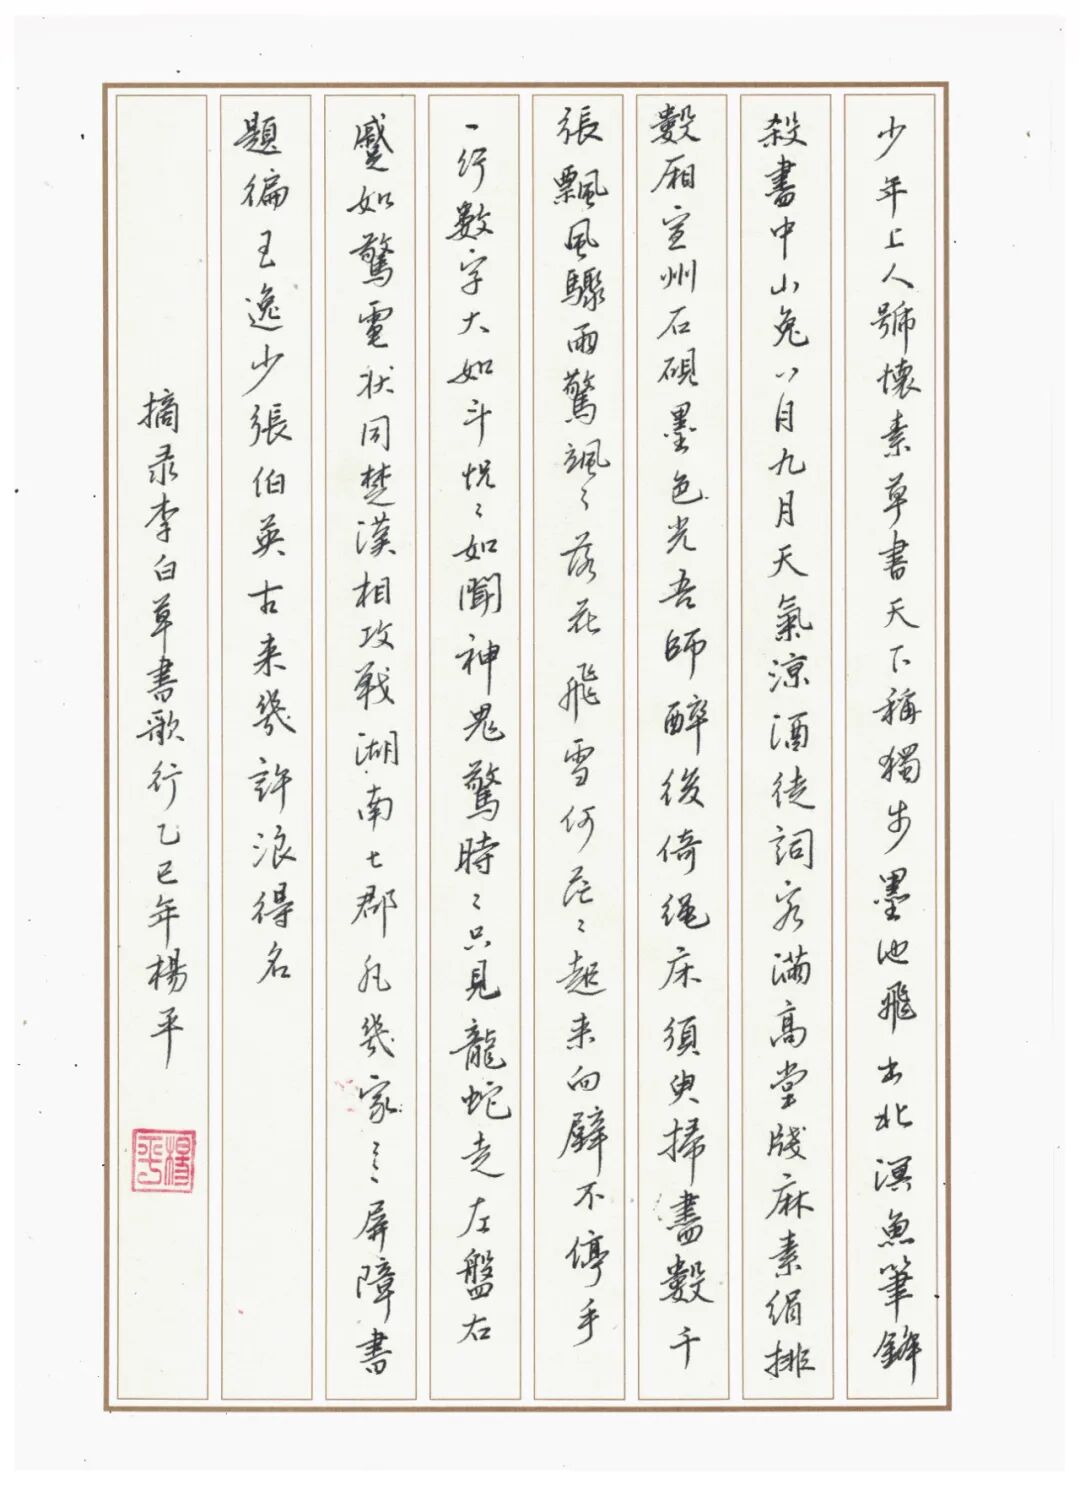 少年上人號懷素草書天下稱獨步墨池飛出北溟魚筆鋒
殺書中山兔八月九月天氣涼酒徒詞客滿高堂牋麻素絹排
數廂宣州石硯墨色光吾師醉後倚繩床須臾掃盡數千
張飄風驟雨驚颯〻落花飛雪何茫〻起来向壁不停手
一行數字大如斗怳〻如聞神鬼驚時〻只見龍蛇走左盤右
蹙如驚電状同楚漢相攻戰湖南七郡凡幾家〻〻屏障書
題徧王逸少張伯英古来幾許浪得名
摘录李白草書歌行乙巳年楊平
楊平